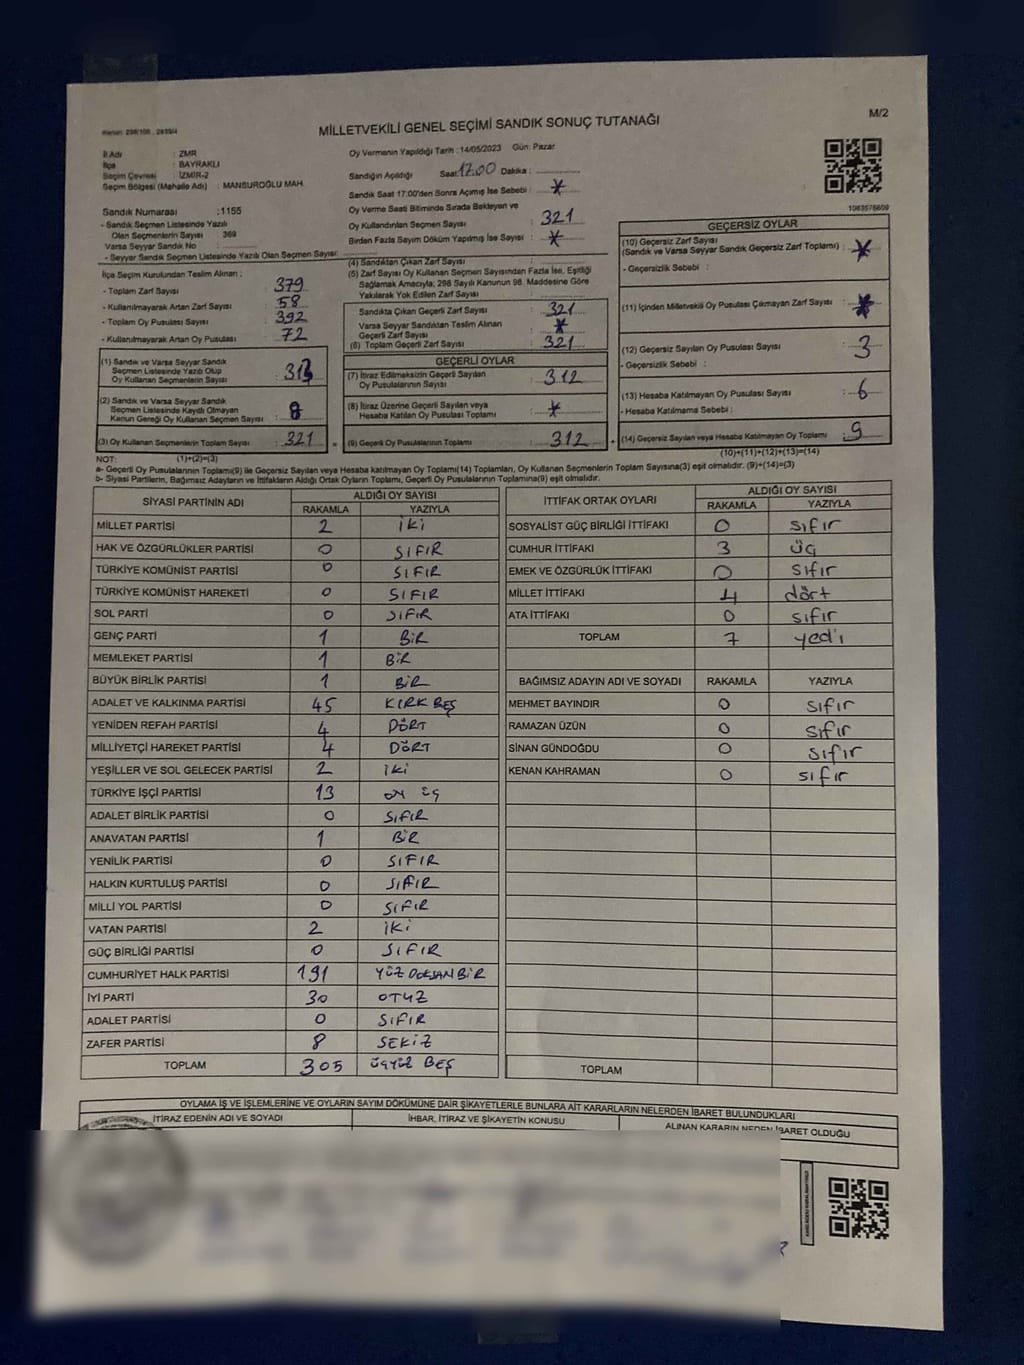 M/2
Kanun: 298/105 , 2839/4
MİLLETVEKİLİ GENEL SEÇİMİ SANDIK SONUÇ TUTANAĞI
İl Adı : ZMR
İlçe : BAYRAKLI
Seçim Çevresi : İZMİR-2
Seçim Bölgesi (Mahalle Adı) : MANSUROĞLU MAH.
Sandık Numarası :1155
- Sandık Seçmen Listesinde Yazılı
Olan Seçmenlerin Sayısı : 369
Varsa Seyyar Sandık No :
- Seyyar Sandık Seçmen Listesinde Yazılı Olan Seçmen Sayısı:
İlçe Seçim Kurulundan Teslim Alınan ;
- Toplam Zarf Sayısı : 379
- Kullanılmayarak Artan Zarf Sayısı : 58
- Toplam Oy Pusulası Sayısı : 392
- Kullanılmayarak Artan Oy Pusulası : 72
(1) Sandık ve Varsa Seyyar Sandık
Seçmen Listesinde Yazılı Olup
Oy Kullanan Seçmenlerin Sayısı : 313
(2) Sandık ve Varsa Seyyar Sandık
Seçmen Listesinde Kayıtlı Olmayan
Kanun Gereği Oy Kullanan Seçmen Sayısı : 8
(3) Oy Kullanan Seçmenlerin Toplam Sayısı : 321
Oy Vermenin Yapıldığı Tarih : 14/05/2023 Gün: Pazar
Sandığın Açıldığı Saat: 17.00 Dakika :
Sandık Saat 17:00'den Sonra Açılmış İse Sebebi : *
Oy Verme Saati Bitiminde Sırada Bekleyen ve
Oy Kullandırılan Seçmen Sayısı : 321
Birden Fazla Sayım Döküm Yapılmış İse Sayısı : *
(4) Sandıktan Çıkan Zarf Sayısı :
(5) Zarf Sayısı Oy Kullanan Seçmen Sayısından Fazla İse, Eşitliği
Sağlamak Amacıyla; 298 Sayılı Kanunun 98. Maddesine Göre
Yakılarak Yok Edilen Zarf Sayısı :
Sandıkta Çıkan Geçerli Zarf Sayısı : 321
Varsa Seyyar Sandıktan Teslim Alınan
Geçerli Zarf Sayısı : *
(6) Toplam Geçerli Zarf Sayısı : 321
GEÇERLİ OYLAR
(7) İtiraz Edilmeksizin Geçerli Sayılan
Oy Pusulalarının Sayısı : 312
(8) İtiraz Üzerine Geçerli Sayılan veya
Hesaba Katılan Oy Pusulası Toplamı : *
= (9) Geçerli Oy Pusulalarının Toplamı : 312
1063576609
GEÇERSİZ OYLAR
(10) Geçersiz Zarf Sayısı
(Sandık ve Varsa Seyyar Sandık Geçersiz Zarf Toplamı) : *
- Geçersizlik Sebebi :
(11) İçinden Milletvekili Oy Pusulası Çıkmayan Zarf Sayısı : *
(12) Geçersiz Sayılan Oy Pusulası Sayısı : 3
- Geçersizlik Sebebi :
(13) Hesaba Katılmayan Oy Pusulası Sayısı : 6
- Hesaba Katılmama Sebebi :
+ (14) Geçersiz Sayılan veya Hesaba Katılmayan Oy Toplamı : 9
NOT: (1)+(2)=(3) (10)+(11)+(12)+(13)=(14)
a- Geçerli Oy Pusulalarının Toplamı(9) ile Geçersiz Sayılan veya Hesaba katılmayan Oy Toplamı(14) Toplamları, Oy Kullanan Seçmenlerin Toplam Sayısına(3) eşit olmalıdır. (9)+(14)=(3)
b- Siyasi Partilerin, Bağımsız Adayların ve İttifakların Aldığı Ortak Oyların Toplamı, Geçerli Oy Pusulalarının Toplamına(9) eşit olmalıdır.
SİYASİ PARTİNİN ADI ALDIĞI OY SAYISI
RAKAMLA YAZIYLA
MİLLET PARTİSİ 2 iKi
HAK VE ÖZGÜRLÜKLER PARTİSİ 0 SIFIR
TÜRKİYE KOMÜNİST PARTİSİ 0 SIFIR
TÜRKİYE KOMÜNİST HAREKETİ 0 SIFIR
SOL PARTİ 0 SIFIR
GENÇ PARTİ 1 BİR
MEMLEKET PARTİSİ 1 BİR
BÜYÜK BİRLİK PARTİSİ 1 BİR
ADALET VE KALKINMA PARTİSİ 45 KIRK BEŞ
YENİDEN REFAH PARTİSİ 4 DÖRT
MİLLİYETÇİ HAREKET PARTİSİ 4 DÖRT
YEŞİLLER VE SOL GELECEK PARTİSİ 2 iKi
TÜRKİYE İŞÇİ PARTİSİ 13 ON ÜÇ
ADALET BİRLİK PARTİSİ 0 SIFIR
ANAVATAN PARTİSİ 1 BİR
YENİLİK PARTİSİ 0 SIFIR
HALKIN KURTULUŞ PARTİSİ 0 SIFIR
MİLLİ YOL PARTİSİ 0 SIFIR
VATAN PARTİSİ 2 iKi
GÜÇ BİRLİĞİ PARTİSİ 0 SIFIR
CUMHURİYET HALK PARTİSİ 191 YÜZ DOKSAN BİR
İYİ PARTİ 30 OTUZ
ADALET PARTİSİ 0 SIFIR
ZAFER PARTİSİ 8 SEKİZ
TOPLAM 305 ÜÇYÜZ BEŞ
İTTİFAK ORTAK OYLARI ALDIĞI OY SAYISI
RAKAMLA YAZIYLA
SOSYALİST GÜÇ BİRLİĞİ İTTİFAKI 0 sıfır
CUMHUR İTTİFAKI 3 üç
EMEK VE ÖZGÜRLÜK İTTİFAKI 0 sıfır
MİLLET İTTİFAKI 4 dört
ATA İTTİFAKI 0 sıfır
TOPLAM 7 yedi
BAĞIMSIZ ADAYIN ADI VE SOYADI RAKAMLA YAZIYLA
MEHMET BAYINDIR 0 sıfır
RAMAZAN ÜZÜN 0 sıfır
SİNAN GÜNDOĞDU 0 sıfır
KENAN KAHRAMAN 0 sıfır
TOPLAM
OYLAMA İŞ VE İŞLEMLERİNE VE OYLARIN SAYIM DÖKÜMÜNE DAİR ŞİKAYETLERLE BUNLARA AİT KARARLARIN NELERDEN İBARET BULUNDUKLARI
İTİRAZ EDENİN ADI VE SOYADI İHBAR, İTİRAZ VE ŞİKAYETİN KONUSU ALINAN KARARIN NEDEN İBARET OLDUĞU